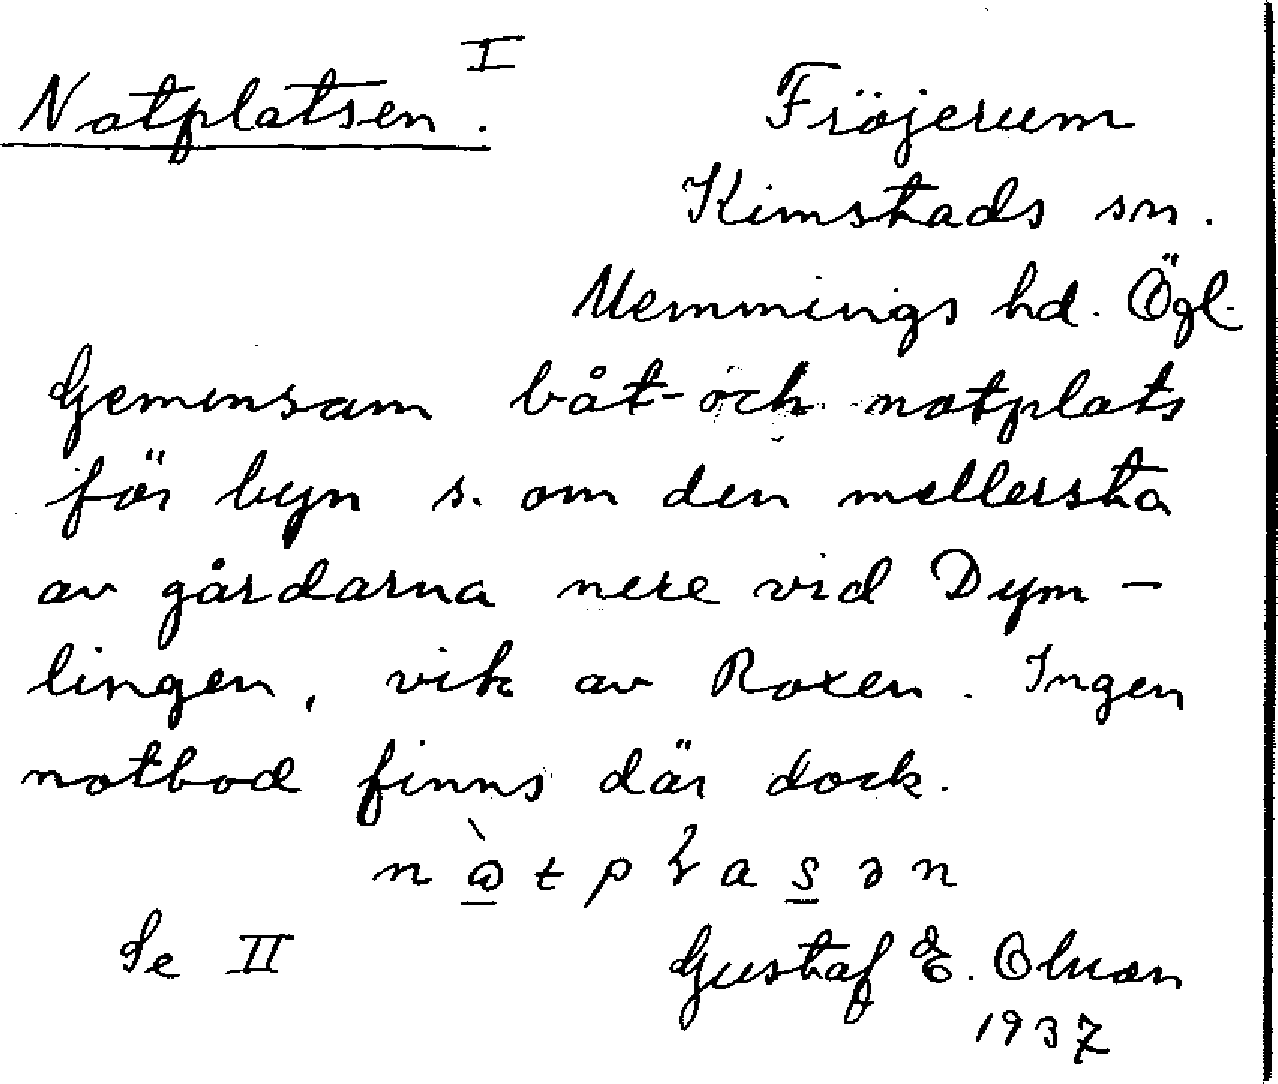 Notplatsen. I
Fröjerum
Kimstads sn.
Memmings hd. Ögl.
Gemensam båt- och notplats
för byn s. om den mellersta
av gårdarna nere vid Dym-
lingen, vik av Roxen. Ingen
notbod finns där dock.
Se II
Gustaf E.
1937